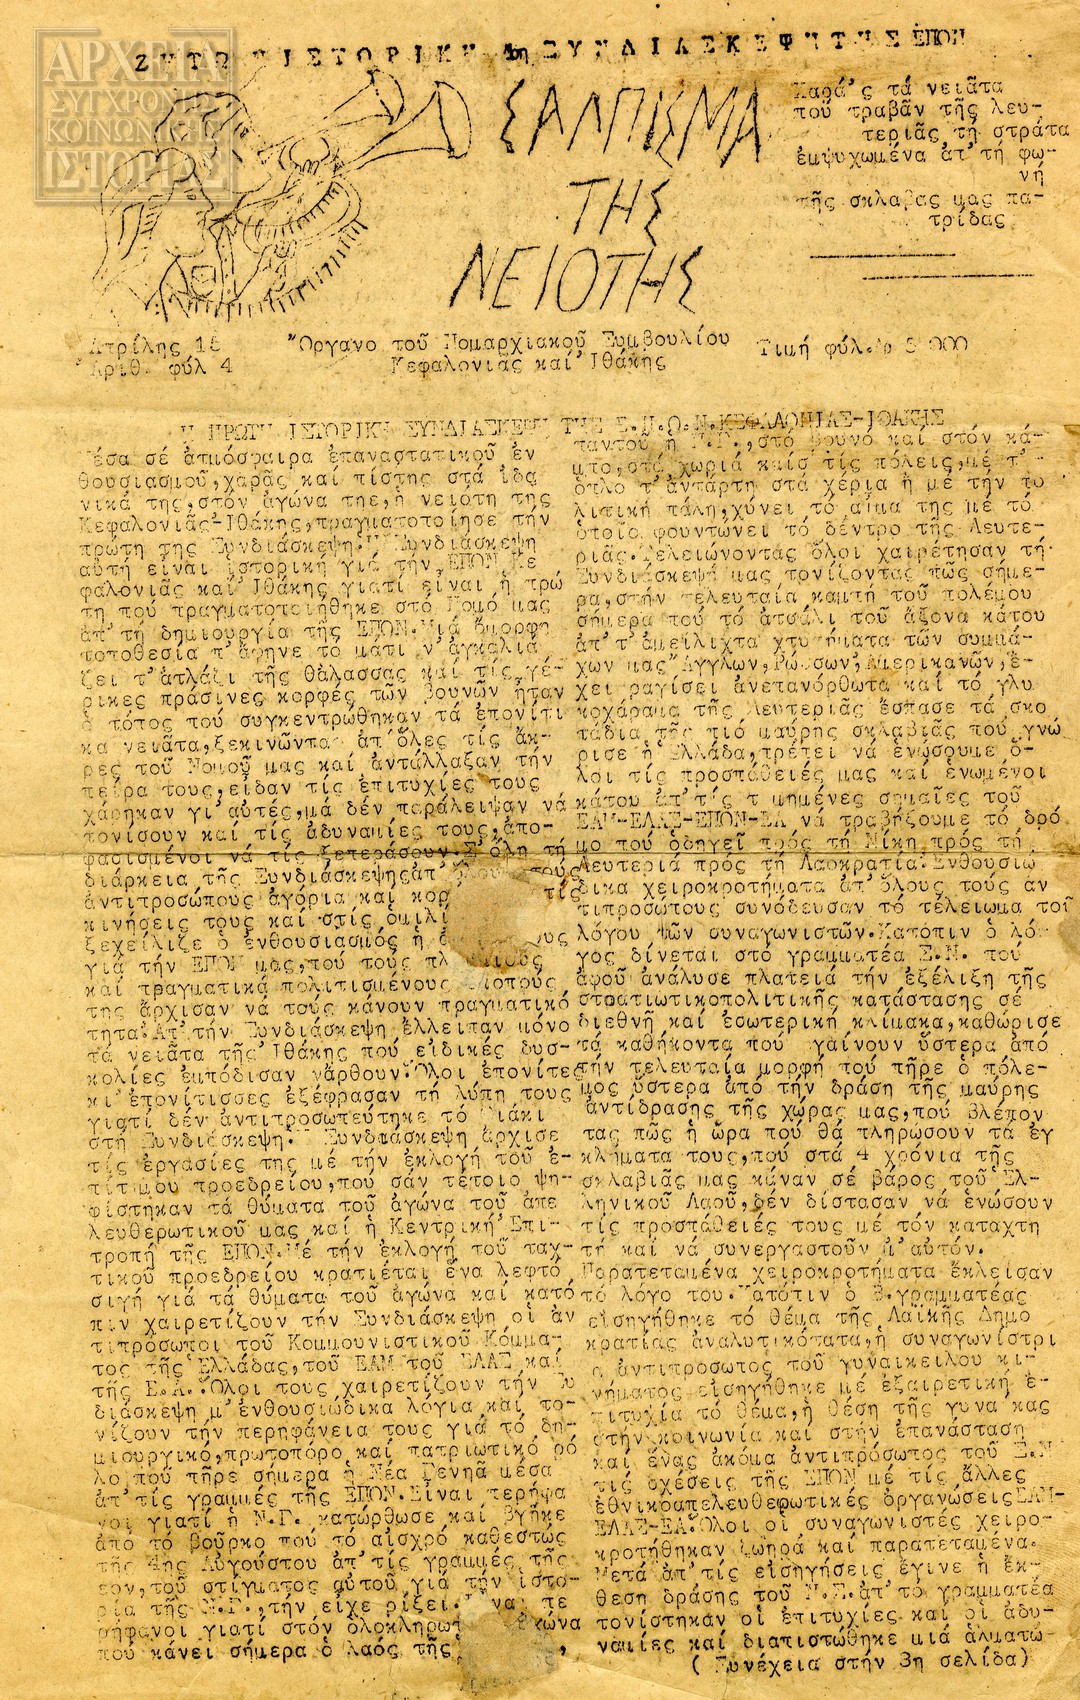 ΑΡΧΕΙΑ
ΣΥΓΧΡΟΝΗΣ
ΚΟΙΝΩΝΙΚΗΣ
ΙΣΤΟΡΙΑΣ
ΖΗΤΩ Η ΙΣΤΟΡΙΚΗ 1η ΣΥΝΔΙΑΣΚΕΨΗ ΤΗΣ ΕΠΟΝ
ΣΑΛΠΙΣΜΑ
ΤΗΣ
ΝΕΙΟΤΗΣ
Χαρά'ς τά νειᾶτα
πού τραβᾶν τῆς λευ-
τεριᾶς τή στράτα
ἐμψυχωμένα ἀπ'τή φω-
νή
τῆς σκλαβας μας πα-
τρίδας
Ἀπρίλης 15
Ἀριθ. φύλ 4
Ὄργανο τοῦ Νομαρχιακοῦ Συμβουλίου
Κεφαλονιᾶς καί Ἰθάκης
Τιμή φύλ. 5 000
Η ΠΡΩΤΗ ΙΣΤΟΡΙΚΗ ΣΥΝΔΙΑΣΚΕΨΗ ΤΗΣ Ε.Π.Ο.Ν.ΚΕΦΑΛΟΝΙΑΣ-ΙΘΑΚΗΣ
Μέσα σέ ἀτμόσφαιρα ἐπαναστατικοῦ ἐν
θουσιασμοῦ,χαρᾶς καί πίστης στά ἰδα
νικά της,στόν ἀγώνα της,ἡ νειότη της
Κεφαλονιᾶς-Ἰθάκης,πραγματοποίησε τήν
πρώτη της Συνδιάσκεψη.Ἡ Συνδιάσκεψη
αὐτή εἶναι ἱστορική γιά τήν ΕΠΟΝ Κε
φαλονιᾶς καί Ἰθάκης γιατί εἶναι ἡ πρώ
τη πού πραγματοποιήθηκε στό Νομό μας
ἀπ'τή δημιουργία τῆς ΕΠΟΝ.Μιά ὄμορφη
τοποθεσία π'ἄφηνε τό μάτι ν'ἀγκαλιά
ζει τ'ἀτλάζι τῆς θάλασσας καί τίς γέ-
ρικες πράσινες κορφές τῶν βουνῶν ἦταν
ὁ τόπος πού συγκεντρώθηκαν τά ἐπονίτι
κα νειᾶτα,ξεκινῶντας ἀπ'ὅλες τίς ἄκ-
ρες τοῦ Νομοῦ μας καί ἀντάλλαξαν τήν
πείρα τους,εἶδαν τίς ἐπιτυχίες τους
χάρηκαν γι'αὐτές,μά δέν παράλειψαν νά
τονίσουν καί τίς ἀδυναμίες τους,ἀπο-
φασισμένοι νά τίς ξεπεράσουν.Σ'ὅλη τή
διάρκεια τῆς Συνδιάσκεψης ἀπ'ὅλους τούς
ἀντιπροσώπους ἀγόρια καί κορ τίς
κινήσεις τους καί στίς ὁμιλί
ξεχείλιζε ὁ ἐνθουσιασμός ἡ ους
γιά τήν ΕΠΟΝ μας,πού τούς πλ
καί πραγματικά πολιτισμένους
της ἄρχισαν νά τούς κάνουν πραγματικό
τητα.Ἀπ'τήν Συνδιάσκεψη ἔλλειπαν μόνο
τά νειᾶτα τῆς Ἰθάκης πού εἰδικές δυσ-
κολίες ἐμπόδισαν νἄρθουν.Ὅλοι ἐπονίτες
κι'ἐπονίτισσες ἐξέφρασαν τή λύπη τους
γιατί δέν ἀντιπροσωπεύτηκε τό Θιάκι
στή Συνδιάσκεψη.Ἡ Συνδιάσκεψη ἄρχισε
τίς ἐργασίες της μέ τήν ἐκλογή τοῦ ἐ-
πίτιμου προεδρείου,πού σάν τέτοιο ψη-
φίστηκαν τά θύματα τοῦ ἀγώνα τοῦ ἀπε
λευθερωτικοῦ μας καί ἡ Κεντρική Ἐπι-
τροπή τῆς ΕΠΟΝ.Μέ τήν ἐκλογή τοῦ ταχ-
τικοῦ προεδρείου κρατιέται ἕνα λεφτό
σιγή γιά τά θύματα τοῦ ἀγώνα καί κατό
πιν χαιρετίζουν τήν Συνδιάσκεψη οἱ ἀν
τιπρόσωποι τοῦ Κομμουνιστικοῦ Κόμμα-
τος τῆς Ἑλλάδας,τοῦ ΕΑΜ τοῦ ΕΛΑΣ καί
τῆς Ε.Α.Ὅλοι τους χαιρετίζουν τήν Συ
διάσκεψη μ'ἐνθουσιώδικα λόγια καί το-
νίζουν τήν περηφάνεια τους γιά τό δη-
μιουργικό,πρωτοπόρο καί πατριωτικό ρό
λο πού πῆρε σήμερα ἡ Νέα Γενηᾶ μέσα
ἀπ'τίς γραμμές τῆς ΕΠΟΝ.Εἶναι περήφα
νοι γιατί ἡ Ν.Γ. κατώρθωσε καί βγῆκε
ἀπό τό βοῦρκο πού τό αἰσχρό καθεστώς
τῆς 4ης Αὐγούστου ἀπ'τίς γραμμές τῆς
τοῦ στίγματος αὐτοῦ γιά τήν ἱστο-
ρία τῆς Ν.Γ.,τήν εἶχε ρίξει. Εἶναι πε
ρήφανοι γιατί στόν ὁλοκληρωτ ἀγώνα
πού κάνει σήμερα ὁ λαός τῆς
παντοῦ ἡ Ν.Γ.,στό βουνό καί στόν κά-
μπο,στά χωριά καί σ τίς πόλεις,μέ τ'
ὅπλο τ'ἀντάρτη στά χέρια ἡ μέ τήν πο
λιτική πάλη,χύνει τό αἷμα της μέ τό
ὁποῖο φουντώνει τό δέντρο τῆς Λευτε-
ριᾶς.Τελειώνοντας ὅλοι χαιρέτησαν τή
Συνδιάσκεψή μας τονίζοντας πῶς σήμε-
ρα,στήν τελευταία καμπή τοῦ πολέμου
σήμερα πού τό ἀτσάλι τοῦ ἄξονα κάτου
ἀπ'τ'ἀμείλιχτα χτυπήματα τῶν συμμά-
χων μας Ἄγγλων,Ρώσσων,Ἀμερικανῶν,ἔ-
χει ραγίσει ἀνεπανόρθωτα καί τό γλυ
κοχάραμα τῆς Λευτεριᾶς ἔσπασε τά σκο
τάδια τῆς πιό μαύρης σκλαβιᾶς πού γνώ
ρισε ἡ Ἑλλάδα,πρέπει νά ἑνώσουμε ὅ-
λοι τίς προσπάθειές μας καί ἑνωμένοι
κάτου ἀπ'τίς τιμημένες σημαῖες τοῦ
ΕΑΜ-ΕΛΑΣ-ΕΠΟΝ-ΕΑ νά τραβήξουμε τό δρό
μο πού ὁδηγεῖ πρός τή Νίκη πρός τή
Λευτεριά πρός τή Λαοκρατία.Ἐνθουσιώ
δικα χειροκροτήματα ἀπ'ὅλους τούς ἀν
τιπροσώπους συνόδευσαν τό τέλειωμα τοῦ
λόγου τῶν συναγωνιστῶν.Κατόπιν ὁ λό-
γος δίνεται στό γραμματέα Ε.Ν. πού
ἀφοῦ ἀνάλυσε πλατειά τήν ἐξέλιξη τῆς
στρατιωτικοπολιτικῆς κατάστασης σέ
διεθνῆ καί ἐσωτερική κλίμακα,καθώρισε
τά καθήκοντα πού βγαίνουν ὕστερα ἀπό
τήν τελευταία μορφή πού πῆρε ὁ πόλε-
μος ὕστερα ἀπό τήν δράση τῆς μαύρης
ἀντίδρασης τῆς χώρας μας,πού βλέπον
τας πῶς ἡ ὥρα πού θά πληρώσουν τά ἐγ
κλήματα τους,πού στά 4 χρόνια τῆς
σκλαβιᾶς μας κάναν σέ βάρος τοῦ Ἑλ-
ληνικοῦ Λαοῦ,δέν δίστασαν νά ἑνώσουν
τίς προσπάθειές τους μέ τόν καταχτη
τή καί νά συνεργαστοῦν μ'αὐτόν.
Παρατεταμένα χειροκροτήματα ἔκλεισαν
τό λόγο του.Κατόπιν ὁ Β.γραμματέας
εἰσηγήθηκε τό θέμα τῆς Λαϊκῆς Δημο
κρατίας ἀναλυτικότατα,ἡ συναγωνίστρι
α ἀντιπρόσωπος τοῦ γυναικείου κι-
νήματος εἰσηγήθηκε μέ ἐξαιρετική ἐ-
πιτυχία τό θέμα,ἡ θέση τῆς γυναίκας
στήν κοινωνία καί στήν ἐπανάσταση
καί ἕνας ἀκόμα ἀντιπρόσωπος τοῦ Ε.Ν
τίς σχέσεις τῆς ΕΠΟΝ μέ τίς ἄλλες
ἐθνικοαπελευθερωτικές ὀργανώσεις ΕΑΜ-
ΕΛΑΣ-ΕΑ.Ὅλοι οἱ συναγωνιστές χειρο-
κροτήθηκαν ζωηρά καί παρατεταμένα.
Μετά ἀπ'τίς εἰσηγήσεις ἔγινε ἡ ἔκ-
θεση δράσης τοῦ Ν.Σ.ἀπ'τό γραμματέα
τονίστηκαν οἱ ἐπιτυχίες καί οἱ ἀδυ-
ναμίες καί διαπιστώθηκε μιά ἁλματώ-
( Συνέχεια στήν 3η σελίδα)